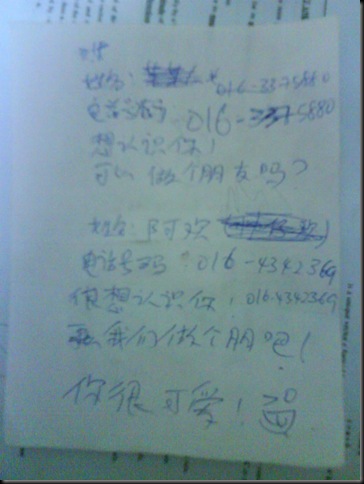 姓名: 016-3375880
电话号码 016-3375880
想认识你!
可以做个朋友吗?
姓名: 阿欢
电话号码: 016-4342369
很想认识你! 016-4342369
我们做个朋吧!
你很可爱!